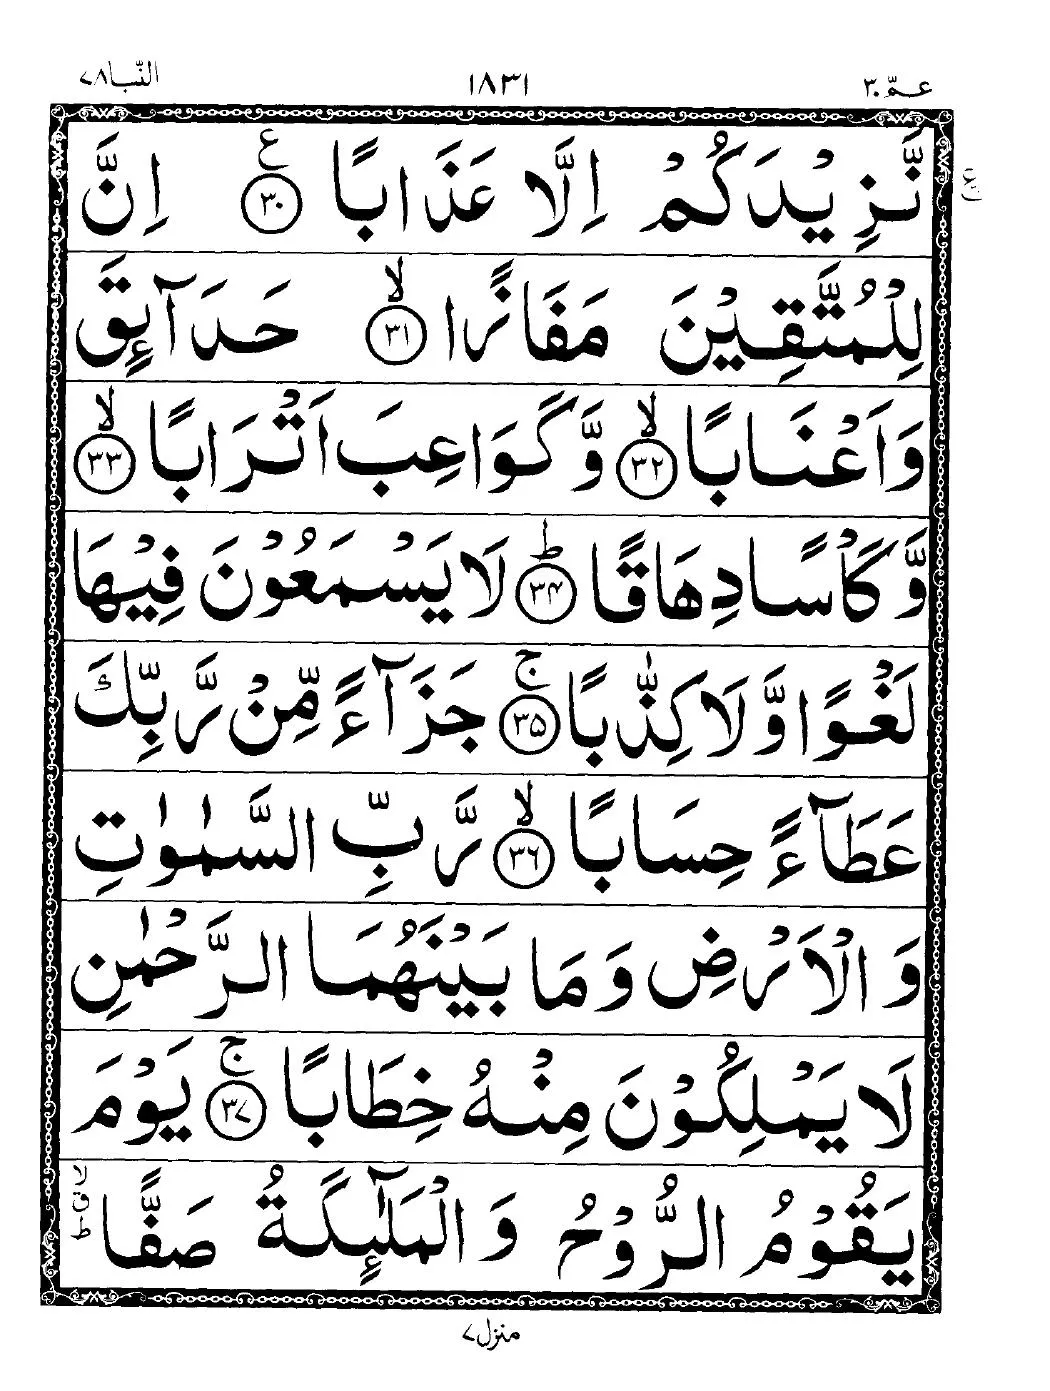 عـمّ ٣٠ ١٨٣١ النّبا ٧٨
نَّزِيْدَكُمْ اِلَّا عَذَابًا ﴿٣٠﴾ ع اِنَّ
ع
لِلْمُتَّقِيْنَ مَفَازًا ﴿٣١﴾ لا حَدَآئِقَ
وَاَعْنَابًا ﴿٣٢﴾ لا وَّكَوَاعِبَ اَتْرَابًا ﴿٣٣﴾ لا
وَّكَاْسًا دِهَاقًا ﴿٣٤﴾ ط لَا يَسْمَعُوْنَ فِيْهَا
لَغْوًا وَّلَا كِذّٰبًا ﴿٣٥﴾ ج جَزَآءً مِّنْ رَّبِّكَ
عَطَآءً حِسَابًا ﴿٣٦﴾ لا رَّبِّ السَّمٰوٰتِ
وَالْاَرْضِ وَمَا بَيْنَهُمَا الرَّحْمٰنِ
لَا يَمْلِكُوْنَ مِنْهُ خِطَابًا ﴿٣٧﴾ ج يَوْمَ
يَقُوْمُ الرُّوْحُ وَالْمَلٰٓئِكَةُ صَفًّا لا ق ط
منزل ٧